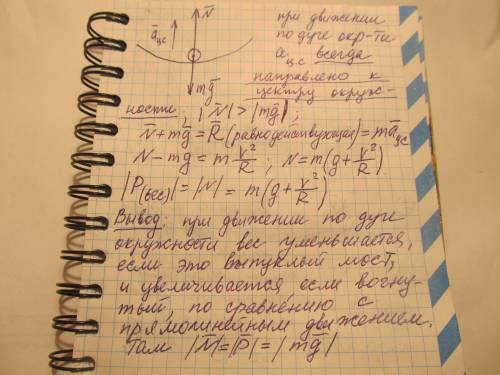 N̄
āцс
mḡ
при движении
по дуге окр-ти
aцс всегда
направлено к
центру окруж-
ности, |N̄| > |mḡ|;
N̄ + mḡ = R̄ (равнодействующая) = māцс
N - mg = m v²/R ; N = m(g + v²/R)
|P(вес)| = |N̄| = m(g + v²/R)
Вывод: при движении по дуге
окружности вес уменьшается,
если это выпуклый мост,
и увеличивается, если вогну-
тый, по сравнению с
прямолинейным движением.
Там |N̄| = |P̄| = |mḡ|